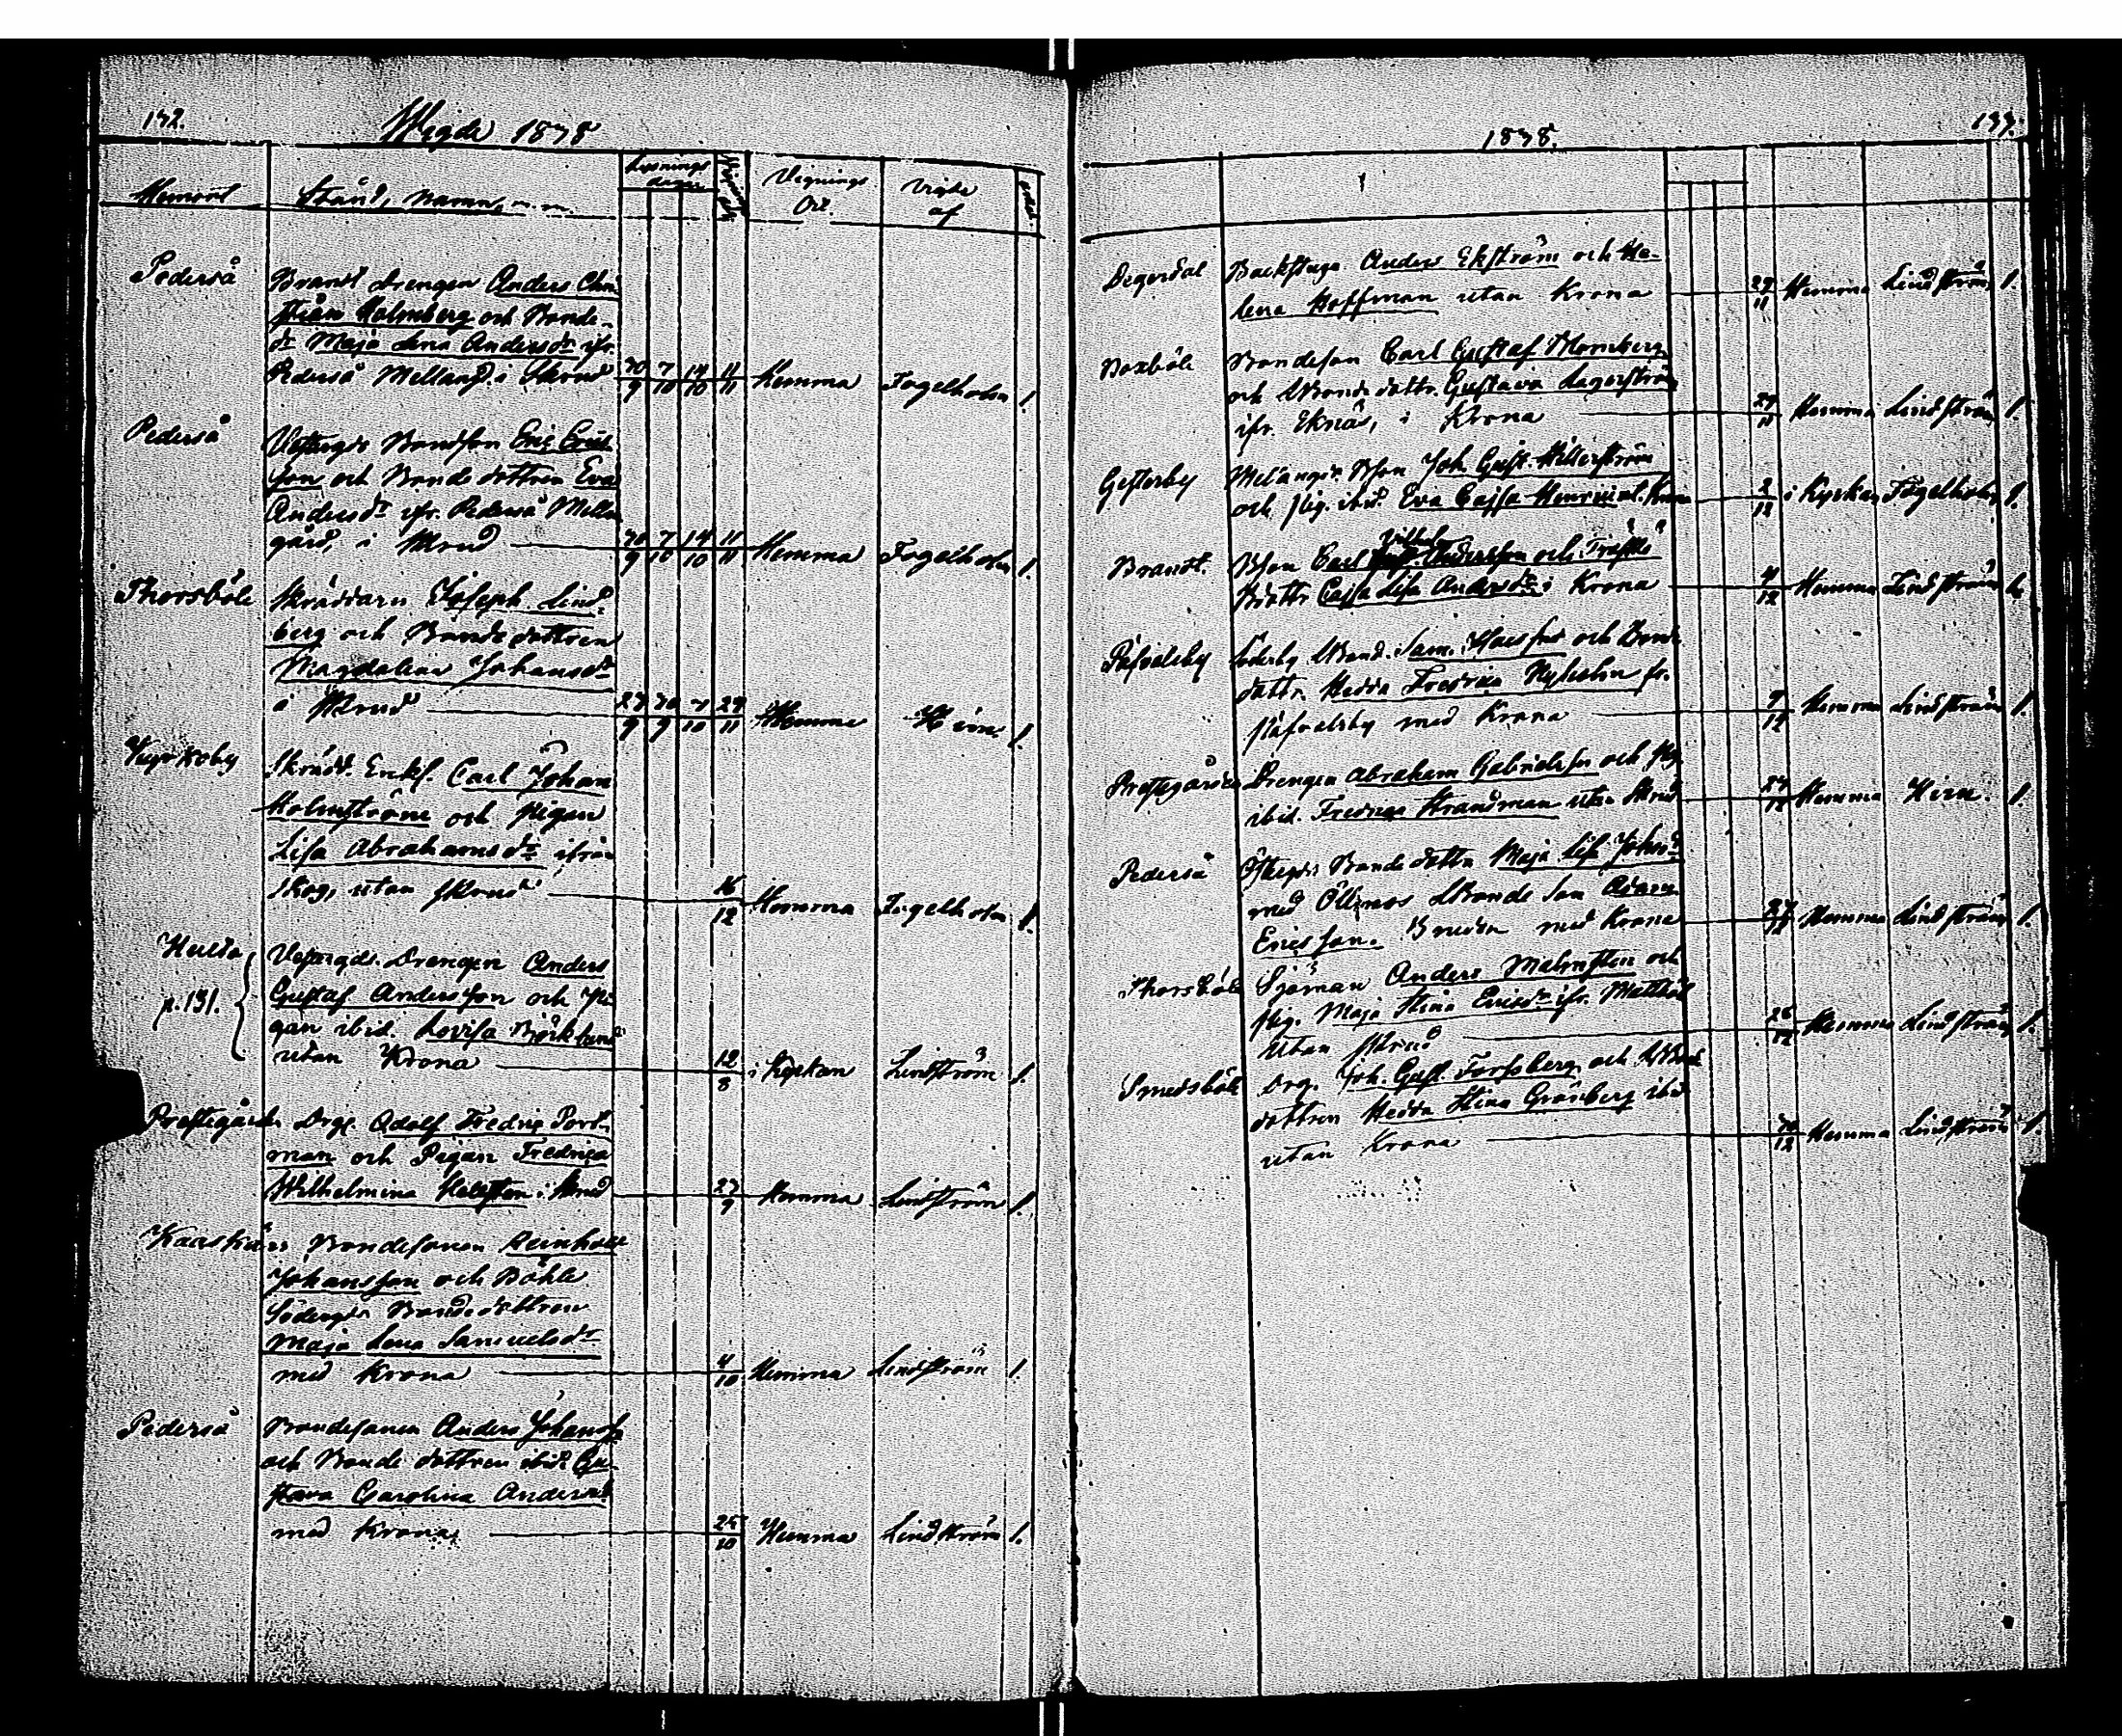 132.
Wigde 1838
Hemort
Stånd, namn, m.m.
Lysnings
dagar
Vignings
Ort.
Vigde
af
Pederså
Brandt Drengen Anders Chri-
stian Holmberg och Bonde-
dr Maja Lena Andersdr ifr.
Pederså Mellangd. i Skrud 30/9 7/10 14/10 11/11 Hemma Fogelholm 1.
Pederså
Vestergds Bondeson Eric Erics-
son och Bonde dottren Eva
Andersdr ifr. Pederså Mellan
gård, i Skrud 30/9 7/10 14/10 11/11 Hemma Fogelholm 1.
Thorsböle
Skräddaren Joseph Lind-
berg och Bonde dottren
Magdalena Johansdr
i Skrud 23/9 30/9 7/10 29/11 Hemma Hirn 1.
Kyrkoby
Skrädd. Enkl. Carl Johan
Holmström och pigan
Lisa Abrahamsdr ifrån
Skog, utan skrud 16/12 Hemma Fogelholm 1.
p. 131.
Drengen Anders
Gustaf Andersson och Pi-
gan ibid. Lovisa Björklund
utan Krona 12/8 i Kyrkan Lindström 1.
Prostegården
Drgl. Adolf Fredric Port-
man och Pigan Fredrica
Wilhelmina i Skrud 23/9 Hemma Lindström 1.
Bondesonen Reinhold
Johansson och Böhle
Södergds Bonde dottren
Maja Lena Samuelsdr
med Krona 4/10 Hemma Lindström 1.
Pederså
Bondesonen Anders Johanss
och Bonde dottren ibid. Gu-
stava Carolina Andersd
med Krona 25/10 Hemma Lindström 1.
1838.
133.
Degerdal
Backstuga Anders Ekström och He-
lena Hoffman utan Krona 29/11 Hemma Lindström 1.
Boxböle
Bondeson Carl Gustaf Blomberg
och Bonde dottr. Gustava Lagerström
ifr. Eknäs, i Krona 29/11 Hemma Lindström 1.
Gesterby
Melangds Bson Joh. Gust. Hillerström
och pig. ibid. Eva Cajsa 2/12 i Kyrkan Fogelholm 1.
Brandt.
Vilhelm
Bson Carl Andersson och Träskö
Bdottr. Cajsa Lisa Andersdr i Krona 4/12 Hemma Lindström
Påfvalsby
Söderby Bond. Sam. och Bonde
dottr. Hedda Fredrica Nyholm fr.
Påfvalsby med Krona 9/12 Hemma Lindström 1.
Prostgården
Drengen Abraham Gabrielsson och pig
ibid. Fredrica Strandman utan Skrud 27/12 Hemma Hirn. 1.
Pederså
Östergds Bonde dottr. Maja Lisa Johansd
med Ölmos Bonde son Adam
Ericsson. Bruden med Krona 27/12 Hemma Lindström 1.
Thorsböle
Sjöman Anders Malmsten och
pig. Maja Stina Ericsdr ifr.
utan skrud 28/12 Hemma Lindström 1.
Smedsböle
Drg. Joh. Gust. Forssberg och Bond
dottren Hedda Stina Grönberg ibid
utan Krona 30/12 Hemma Lindström 1.